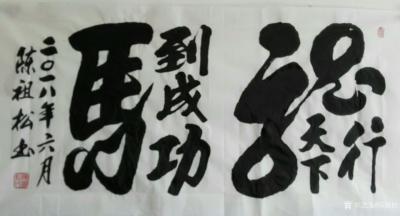 龍行天下
馬到成功
二〇一八年六月
陈祖松书